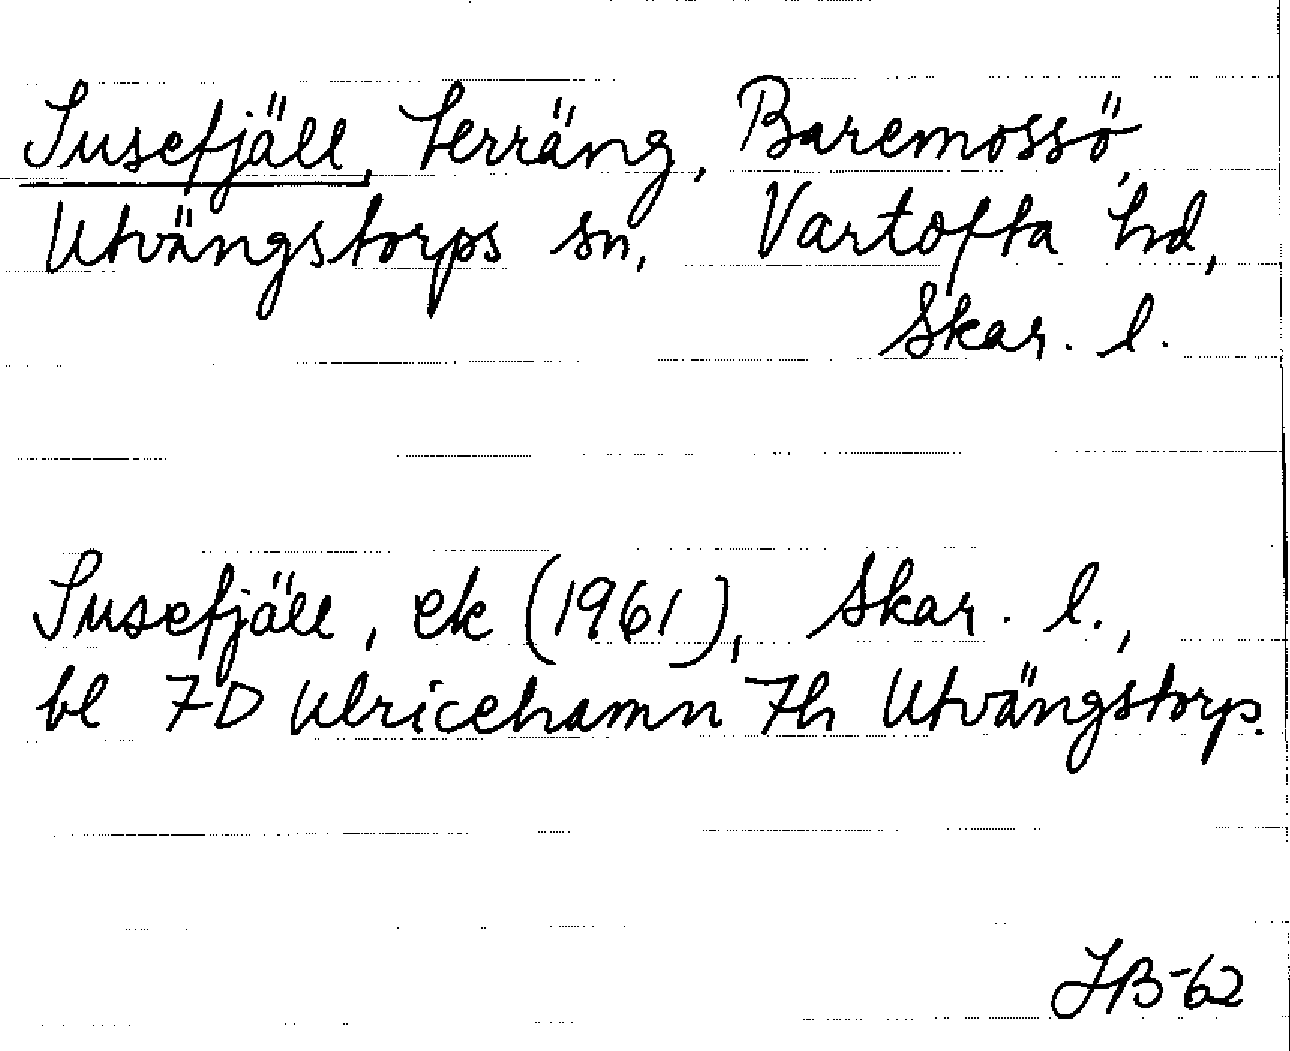 Susefjäll, terräng, Baremossö,
Utvängstorps sn, Vartofta hd,
Skar. l.
Susefjäll, ek (1961), Skar. l.,
bl 7D Ulricehamn 7h Utvängstorp.
JB-62